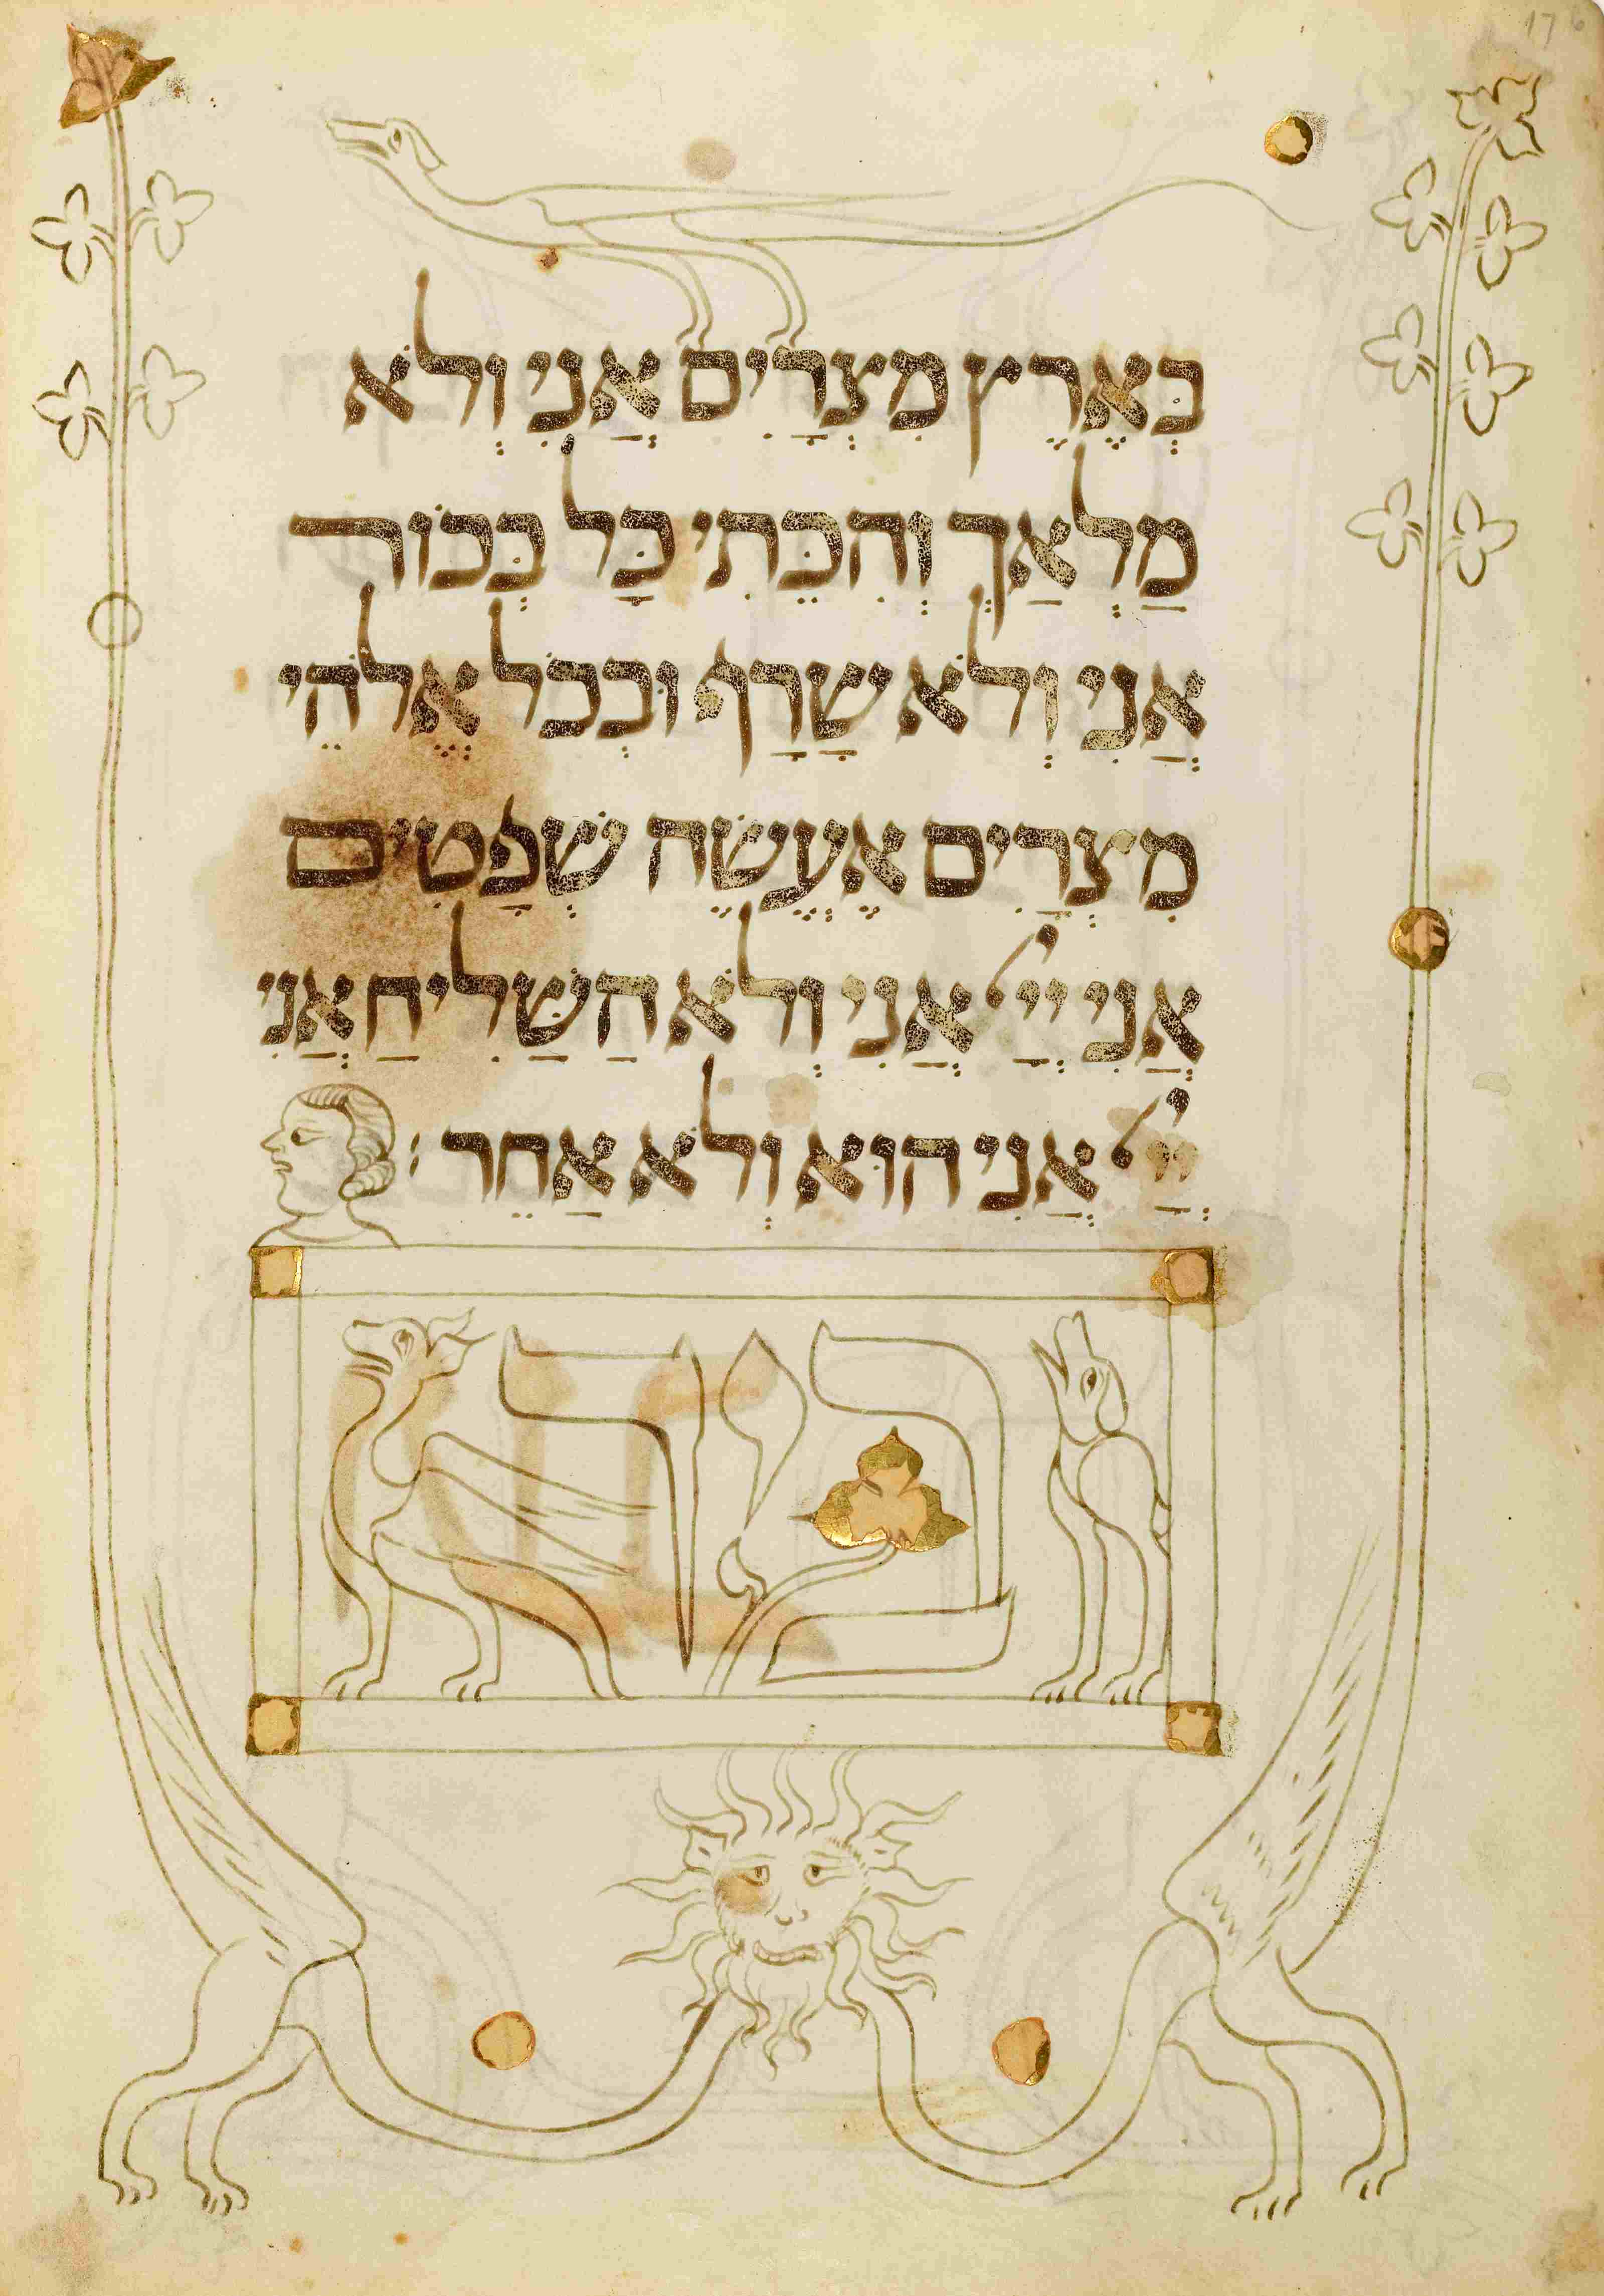 בְּאֶרֶץ מִצְרַיִם אֲנִי וְלֹא
מַלְאַךְ וְהִכֵּתִי כָּל בְּכוֹר
אֲנִי וְלֹא שָׂרָף וּבְכֹל אֱלֹהֵי
מִצְרַיִם אֶעֱשֶׂה שְׁפָטִים
אֲנִי יְיָ אֲנִי וְלֹא הַשַּׁלִיחַ אֲנִי
יְיָ אֲנִי הוּא וְלֹא אַחֵר׃
ביד
176